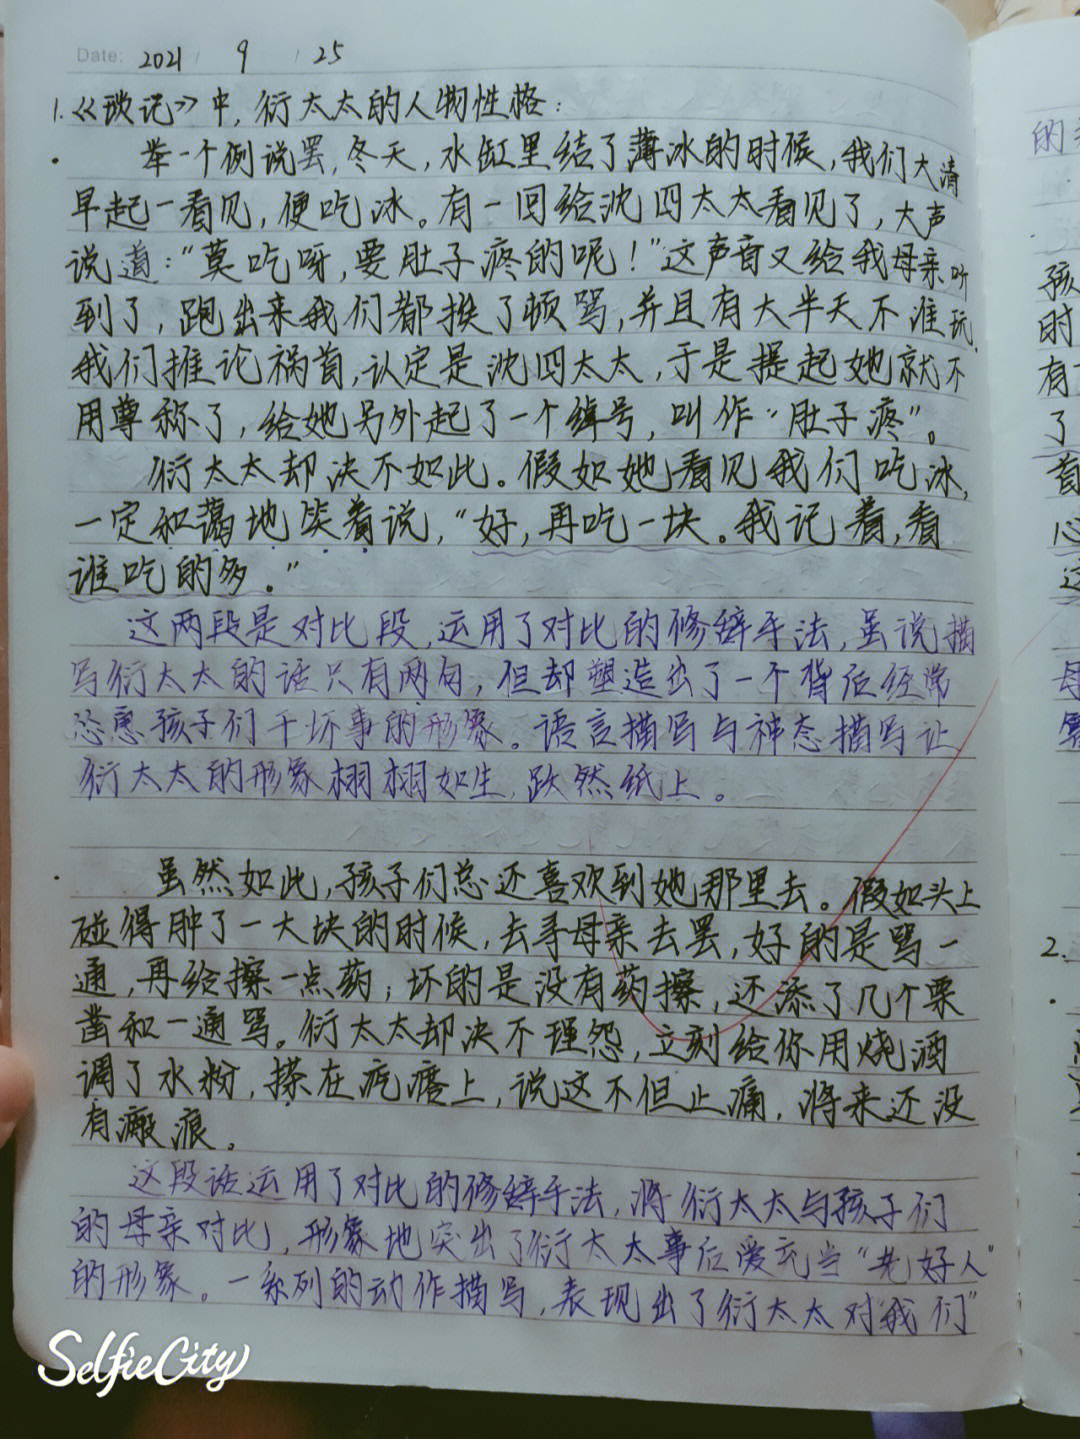 Date: 2021 / 9 / 25
1.《琐记》中,衍太太的人物性格:
举一个例说罢,冬天,水缸里结了薄冰的时候,我们大清
早起一看见,便吃冰。有一回给沈四太太看见了,大声
说道:“莫吃呀,要肚子疼的呢!”这声音又给我母亲听
到了,跑出来我们都挨了顿骂,并且有大半天不准玩.
我们推论祸首,认定是沈四太太,于是提起她就不
用尊称了,给她另外起了一个绰号,叫作“肚子疼”。
衍太太却决不如此。假如她看见我们吃冰,
一定和蔼地笑着说,“好,再吃一块。我记着,看
谁吃的多。”
这两段是对比段,运用了对比的修辞手法,虽说描
写衍太太的话只有两句,但却塑造出了一个背后经常
怂恿孩子们干坏事的形象。语言描写与神态描写让
衍太太的形象栩栩如生,跃然纸上。
虽然如此,孩子们总还喜欢到她那里去。假如头上
碰得肿了一大块的时候,去寻母亲去罢,好的是骂一
通,再给擦一点药;坏的是没有药擦,还添了几个栗
凿和一通骂。衍太太却决不埋怨,立刻给你用烧酒
调了水粉,搽在疙瘩上,说这不但止痛,将来还没
有瘢痕。
这段话运用了对比的修辞手法,将衍太太与孩子们
的母亲对比,形象地突出了衍太太事后爱充当“老好人”
的形象。一系列的动作描写,表现出了衍太太对“我们”
SelfieCity
的
孩
时
有
了
首
心
这
母
2.